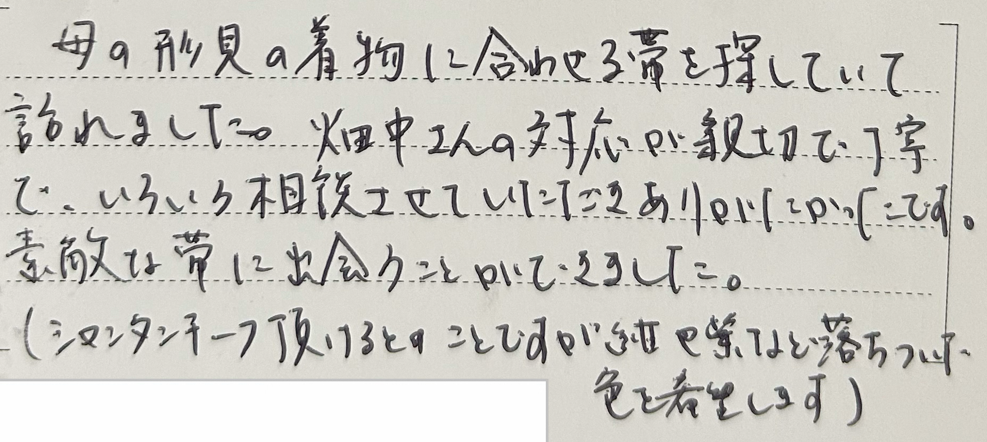 母の形見の着物に合わせる帯を探していて
訪れました。畑中さんの対応が親切で丁寧
で、いろいろ相談させていただきありがたかったです。
素敵な帯に出会うことができました。
(シロンタンチーフ頂けるとのことですが紺や紫など落ちついた
色を希望します)